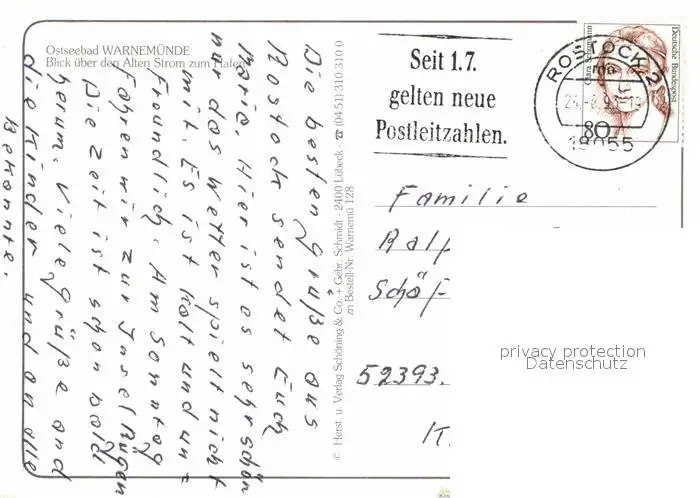 Ostseebad WARNEMÜNDE
Blick über den Alten Strom zum Hafen
Die besten Grüße aus
Rostock sendet Euch
Maria. Hier ist es sehr schön
nur das Wetter spielt nicht
mit. Es ist kalt und un=
freundlich. Am Sonntag
fahren wir zur Insel Rügen
Die Zeit ist schon bald
herum. Viele Grüße and
die Kinder und an alle
Bekannte.
© Herst. u. Verlag Schöning & Co. + Gebr. Schmidt · 2400 Lübeck · ☎ (04 51) 310 310 0
zn Bestell-Nr. Warnemü 128
Seit 1.7.
gelten neue
Postleitzahlen.
ROSTOCK 2
mo
18055
80
Deutsche Bundespost
Familie
Ralf
Schäf
52393.
K.
privacy protection
Datenschutz